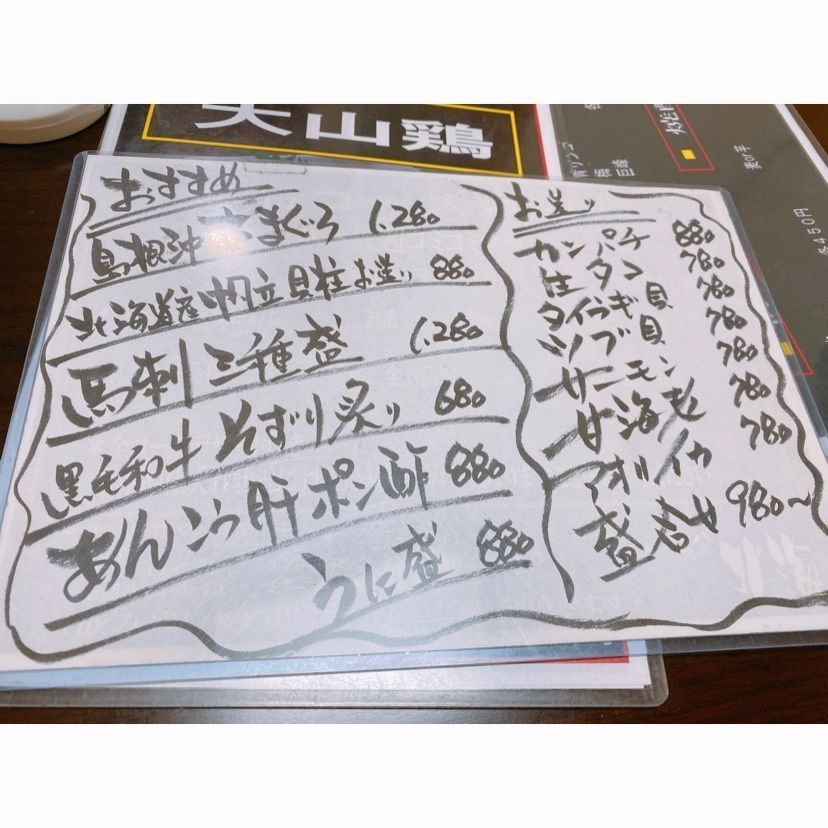 大山鶏
おすすめ
島根沖 本まぐろ 1,280
北海道産 帆立貝柱お造り 880
馬刺 三種盛 1,280
黒毛和牛 そずり炙り 680
あんこう肝ポン酢 880
うに盛 880
お造り
カンパチ 880
生タコ 780
タイラギ貝 780
ツブ貝 780
サーモン 780
甘海老 780
アオリイカ 780
盛合せ 980〜
巨峰
梅
各450円